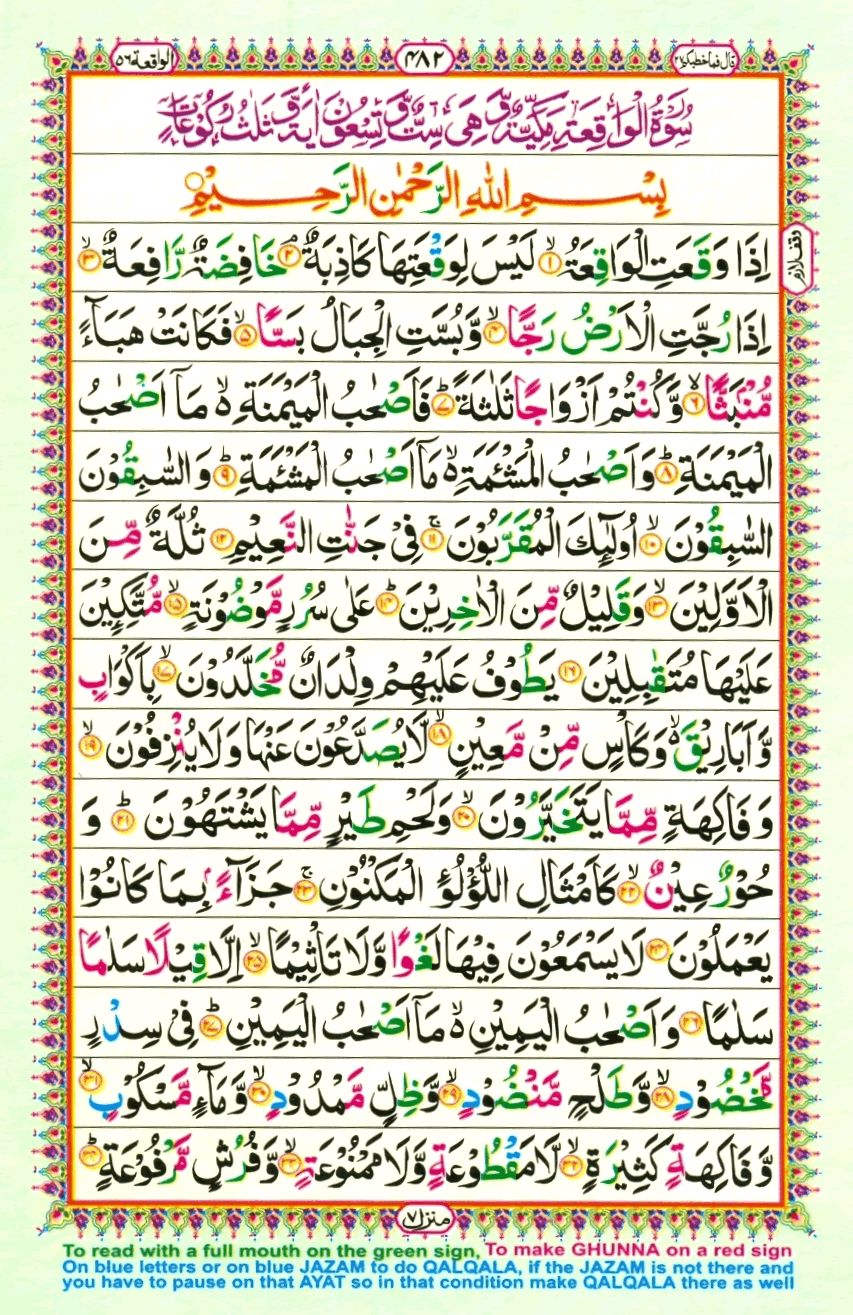 قال فما خطبكم ٢٧
٤٨٢
الواقعة ٥٦
سُوْرَةُ الْوَاقِعَةِ مَكِّيَّةٌ وَّهِىَ سِتٌّ وَّتِسْعُوْنَ اٰيَةً وَّثَلٰثُ رُكُوْعَاتٍ
بِسْمِ اللّٰهِ الرَّحْمٰنِ الرَّحِيْمِ
وقف لازم
اِذَا وَقَعَتِ الْوَاقِعَةُ ۙ‏﴿۱﴾ لَيْسَ لِوَقْعَتِهَا كَاذِبَةٌ ۘ‏﴿۲﴾ خَافِضَةٌ رَّافِعَةٌ ۙ‏﴿۳﴾
اِذَا رُجَّتِ الْاَرْضُ رَجًّا ۙ‏﴿۴﴾ وَّبُسَّتِ الْجِبَالُ بَسًّا ۙ‏﴿۵﴾ فَكَانَتْ هَبَآءً
مُّنْۢبَثًّا ۙ‏﴿۶﴾ وَّكُنْتُمْ اَزْوَاجًا ثَلٰثَةً ؕ‏﴿۷﴾ فَاَصْحٰبُ الْمَيْمَنَةِ ۙ۬ مَاۤ اَصْحٰبُ
الْمَيْمَنَةِ ؕ‏﴿۸﴾ وَاَصْحٰبُ الْمَشْـَٔمَةِ ۙ۬ مَاۤ اَصْحٰبُ الْمَشْـَٔمَةِ ؕ‏﴿۹﴾ وَالسّٰبِقُوْنَ
السّٰبِقُوْنَ ۙ‏﴿۱۰﴾ اُولٰٓئِكَ الْمُقَرَّبُوْنَ ۚ‏﴿۱۱﴾ فِىْ جَنّٰتِ النَّعِيْمِ ‏﴿۱۲﴾ ثُلَّةٌ مِّنَ
الْاَوَّلِيْنَ ۙ‏﴿۱۳﴾ وَقَلِيْلٌ مِّنَ الْاٰخِرِيْنَ ؕ‏﴿۱۴﴾ عَلٰى سُرُرٍ مَّوْضُوْنَةٍ ۙ‏﴿۱۵﴾ مُّتَّكِـِٕيْنَ
عَلَيْهَا مُتَقٰبِلِيْنَ ‏﴿۱۶﴾ يَطُوْفُ عَلَيْهِمْ وِلْدَانٌ مُّخَلَّدُوْنَ ۙ‏﴿۱۷﴾ بِاَكْوَابٍ
وَّاَبَارِيْقَ ۙ۬ وَكَاْسٍ مِّنْ مَّعِيْنٍ ۙ‏﴿۱۸﴾ لَّا يُصَدَّعُوْنَ عَنْهَا وَلَا يُنْزِفُوْنَ ۙ‏﴿۱۹﴾
وَفَاكِهَةٍ مِّمَّا يَتَخَيَّرُوْنَ ۙ‏﴿۲۰﴾ وَلَحْمِ طَيْرٍ مِّمَّا يَشْتَهُوْنَ ؕ‏﴿۲۱﴾ وَ
حُوْرٌ عِيْنٌ ۙ‏﴿۲۲﴾ كَاَمْثَالِ اللُّؤْلُـؤِ الْمَكْنُوْنِ ۚ‏﴿۲۳﴾ جَزَآءًۢ بِمَا كَانُوْا
يَعْمَلُوْنَ ‏﴿۲۴﴾ لَا يَسْمَعُوْنَ فِيْهَا لَغْوًا وَّلَا تَاْثِيْمًا ۙ‏﴿۲۵﴾ اِلَّا قِيْلًا سَلٰمًا
سَلٰمًا ‏﴿۲۶﴾ وَاَصْحٰبُ الْيَمِيْنِ ۙ۬ مَاۤ اَصْحٰبُ الْيَمِيْنِ ؕ‏﴿۲۷﴾ فِىْ سِدْرٍ
مَّخْضُوْدٍ ۙ‏﴿۲۸﴾ وَّطَلْحٍ مَّنْضُوْدٍ ۙ‏﴿۲۹﴾ وَّظِلٍّ مَّمْدُوْدٍ ۙ‏﴿۳۰﴾ وَّمَآءٍ مَّسْكُوْبٍ ۙ‏﴿۳۱﴾
وَّفَاكِهَةٍ كَثِيْرَةٍ ۙ‏﴿۳۲﴾ لَّا مَقْطُوْعَةٍ وَّلَا مَمْنُوْعَةٍ ۙ‏﴿۳۳﴾ وَّفُرُشٍ مَّرْفُوْعَةٍ ؕ‏﴿۳۴﴾
منزل ٧
To read with a full mouth on the green sign, To make GHUNNA on a red sign
On blue letters or on blue JAZAM to do QALQALA, if the JAZAM is not there and
you have to pause on that AYAT so in that condition make QALQALA there as well